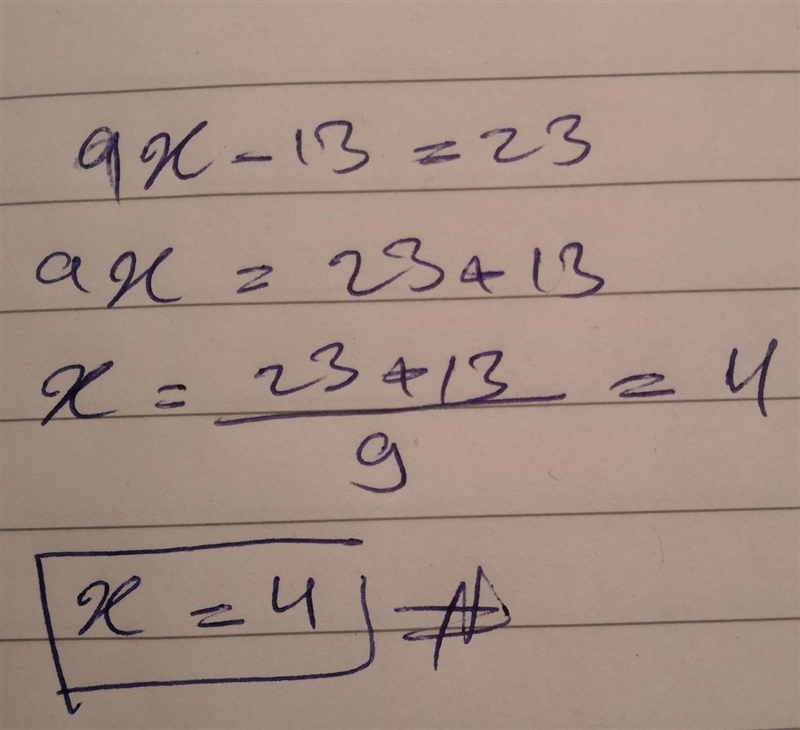 9x - 13 = 23
9x = 23 + 13
x = \frac{23 + 13}{9} = 4
x = 4 #